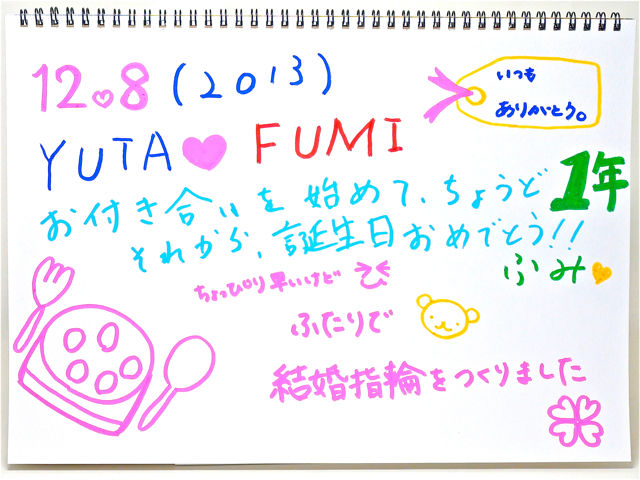 12.8 (2013)
いつも
ありがとう。
YUTA ♥ FUMI
お付き合いを始めて、ちょうど1年
それから、誕生日おめでとう!!
ふみ
ちょっぴり早いけど
ふたりで
結婚指輪をつくりました